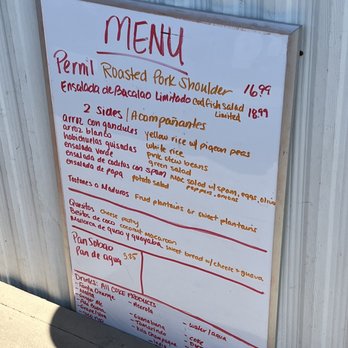 MENU
Pernil Roasted Pork Shoulder 16.99
Ensalada de Bacalao Limitado codfish salad Limited 18.99
2 Sides / Acompañantes
arroz con gandules yellow rice w/ pigeon peas
arroz blanco white rice
habichuelas guisadas pork stew beans
ensalada verde green salad
ensalada de coditos con spam Mac salad w/ spam, eggs,
ensalada de papa potato salad peppers, onions
Tostones o Maduros Fried plantains or sweet plantains
Quesitos cheese pastry
Besitos de coco coconut macaroon
Mallorca de queso y guayaba sweet bread w/ cheese + guava
Pan Sobao
Pan de agua 5.25
Drinks: All COKE PRODUCTS